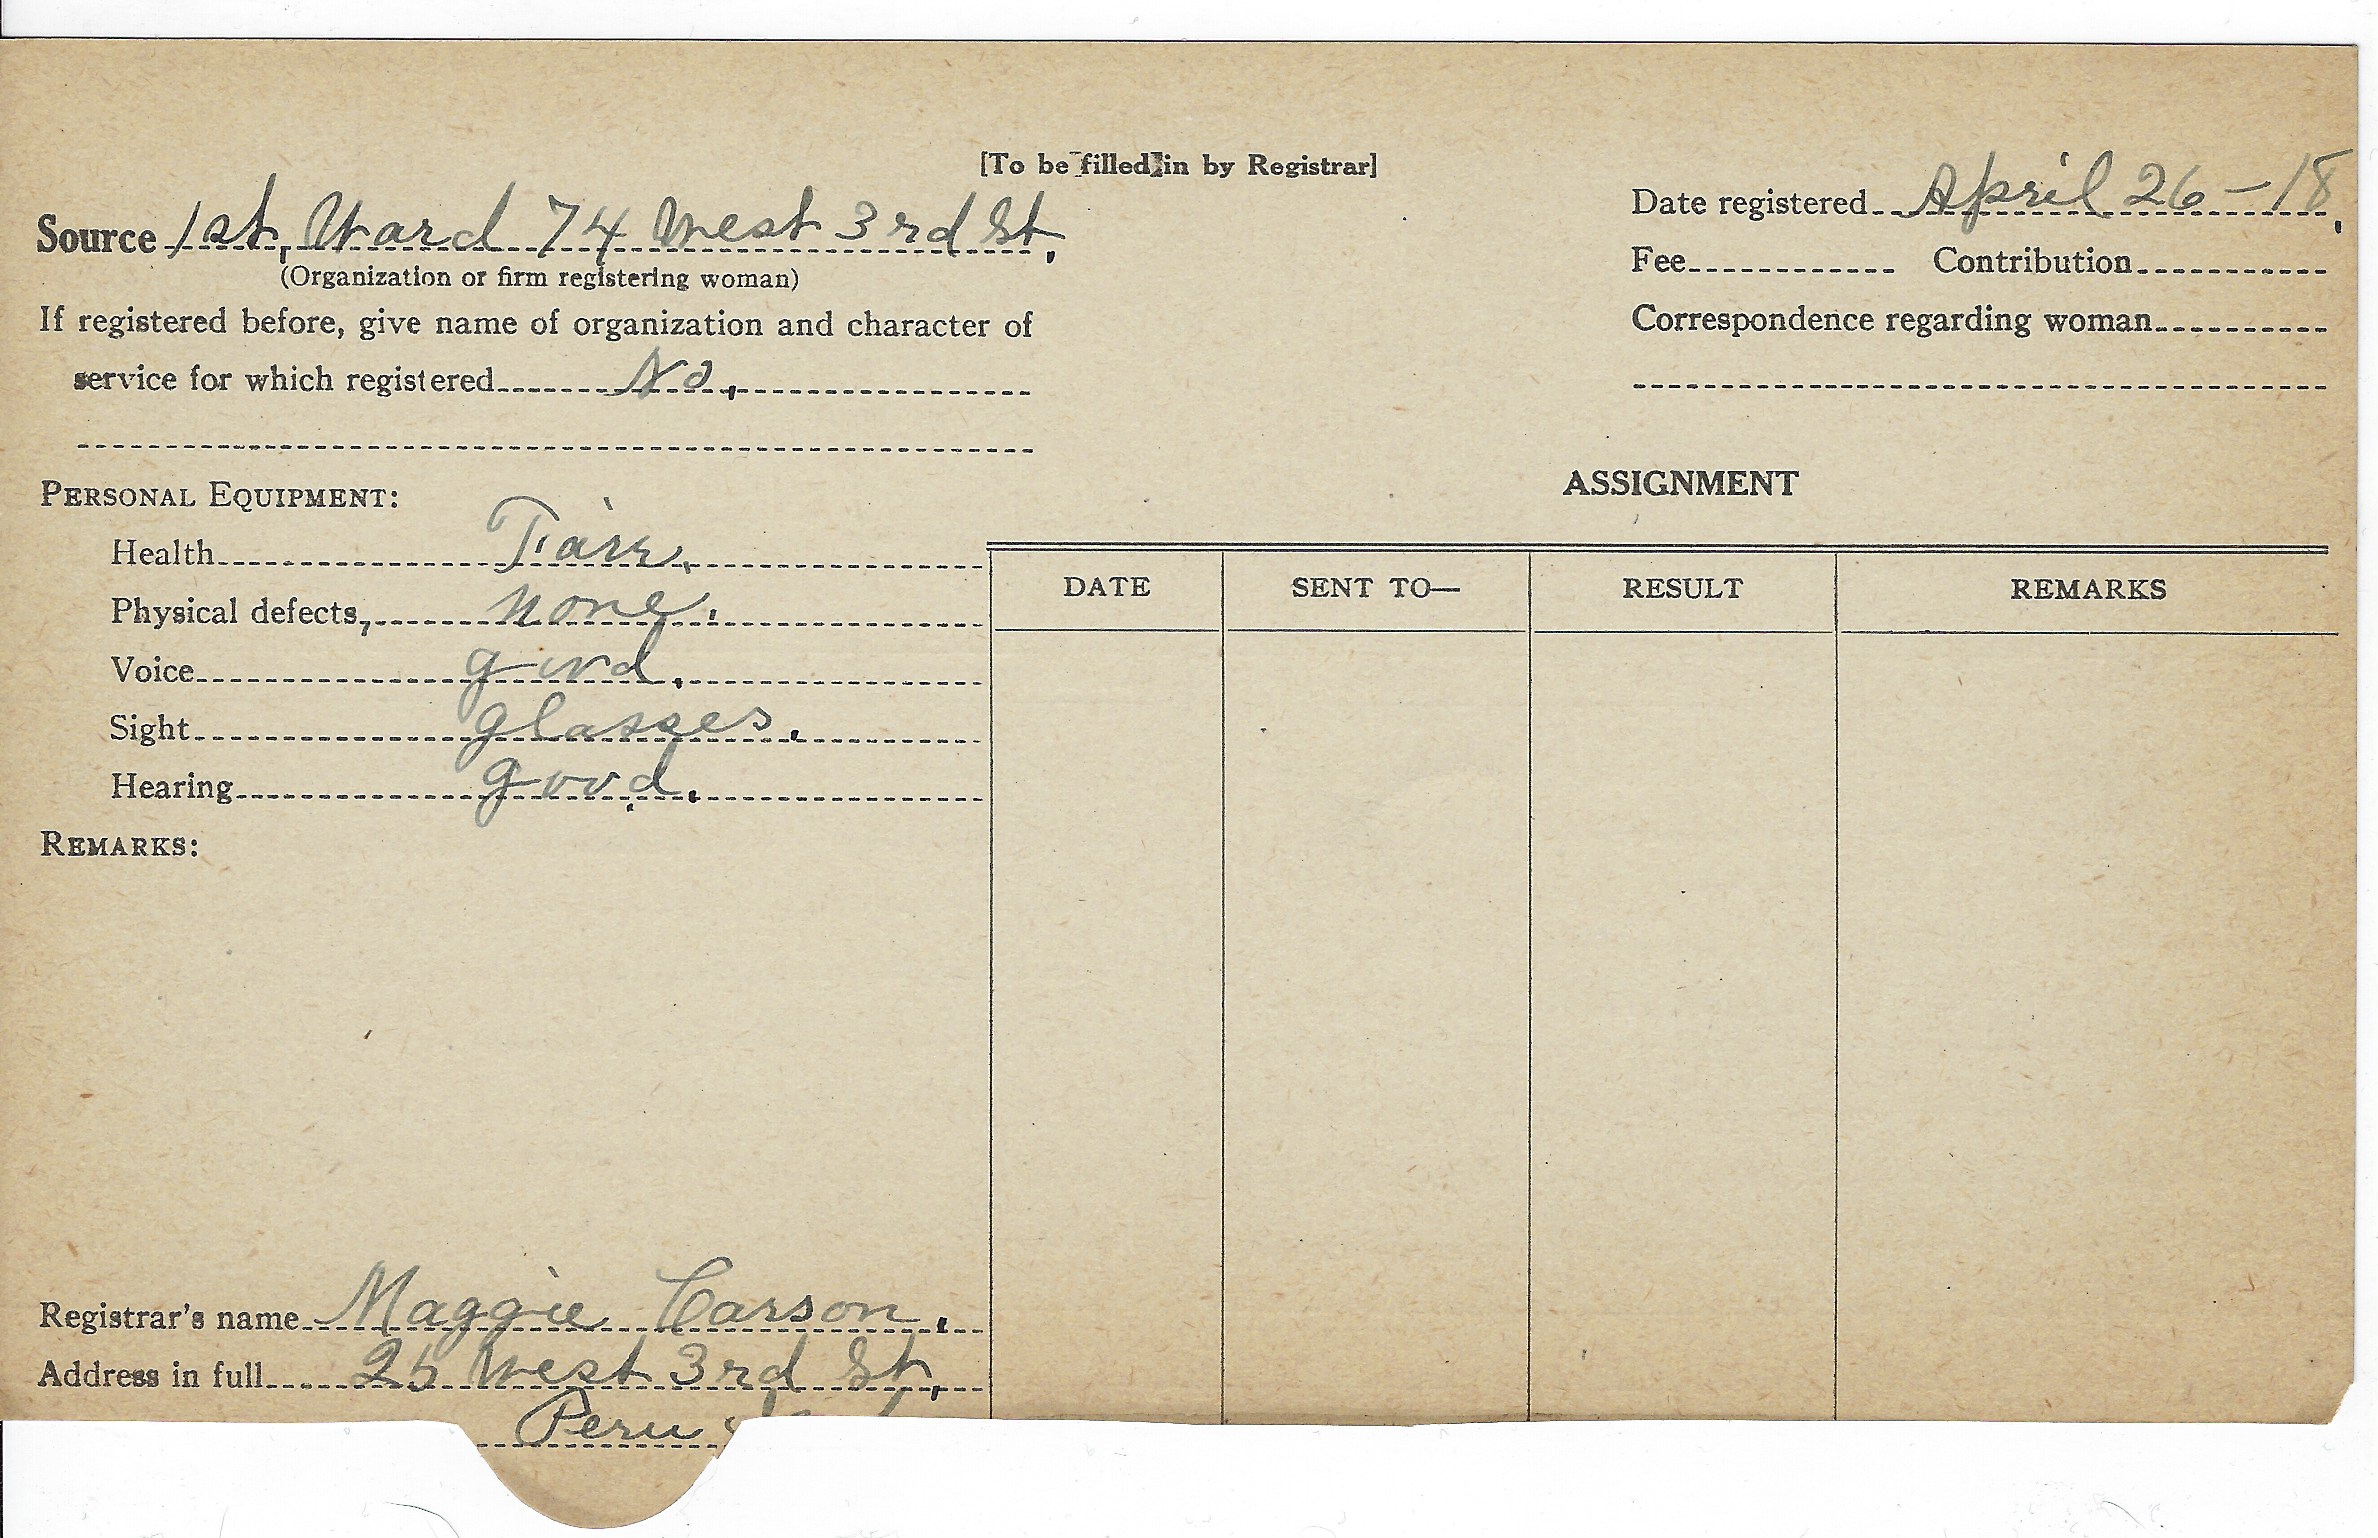 [To be filled in by Registrar]
Source 1st, Ward 74 West 3rd St,
(Organization or firm registering woman)
If registered before, give name of organization and character of
service for which registered No,
Date registered April 26-18,
Fee Contribution
Correspondence regarding woman
PERSONAL EQUIPMENT:
Health Fair.
Physical defects, none.
Voice good.
Sight glasses.
Hearing good.
REMARKS:
Registrar's name Maggie Carson.
Address in full 25 West 3rd St,
Peru
ASSIGNMENT
DATE SENT TO— RESULT REMARKS